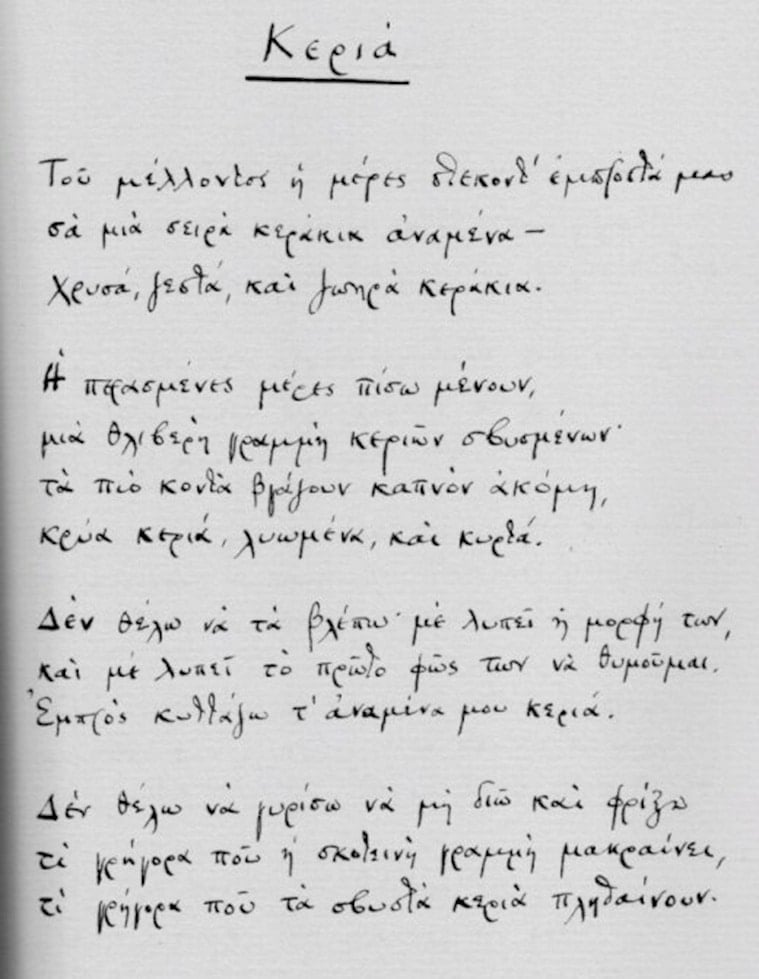 Κεριά
Τοῦ μέλλοντος ἡ μέρες στέκοντ' ἐμπροστά μας
σὰ μιὰ σειρὰ κεράκια ἀναμένα —
χρυσά, ζεστά, καὶ ζωηρὰ κεράκια.
Ἡ περασμένες μέρες πίσω μένουν,
μιὰ θλιβερὴ γραμμὴ κεριῶν σβυσμένων·
τὰ πιὸ κοντὰ βγάζουν καπνὸν ἀκόμη,
κρύα κεριά, λυωμένα, καὶ κυρτά.
Δὲν θέλω νὰ τὰ βλέπω· μὲ λυπεῖ ἡ μορφή των,
καὶ μὲ λυπεῖ τὸ πρῶτο φῶς των νὰ θυμοῦμαι.
Ἐμπρὸς κυττάζω τ' ἀναμένα μου κεριά.
Δὲν θέλω νὰ γυρίσω νὰ μὴ διῶ καὶ φρίξω
τὶ γρήγορα ποῦ ἡ σκοτεινὴ γραμμὴ μακραίνει,
τὶ γρήγορα ποῦ τὰ σβυστὰ κεριὰ πληθαίνουν.